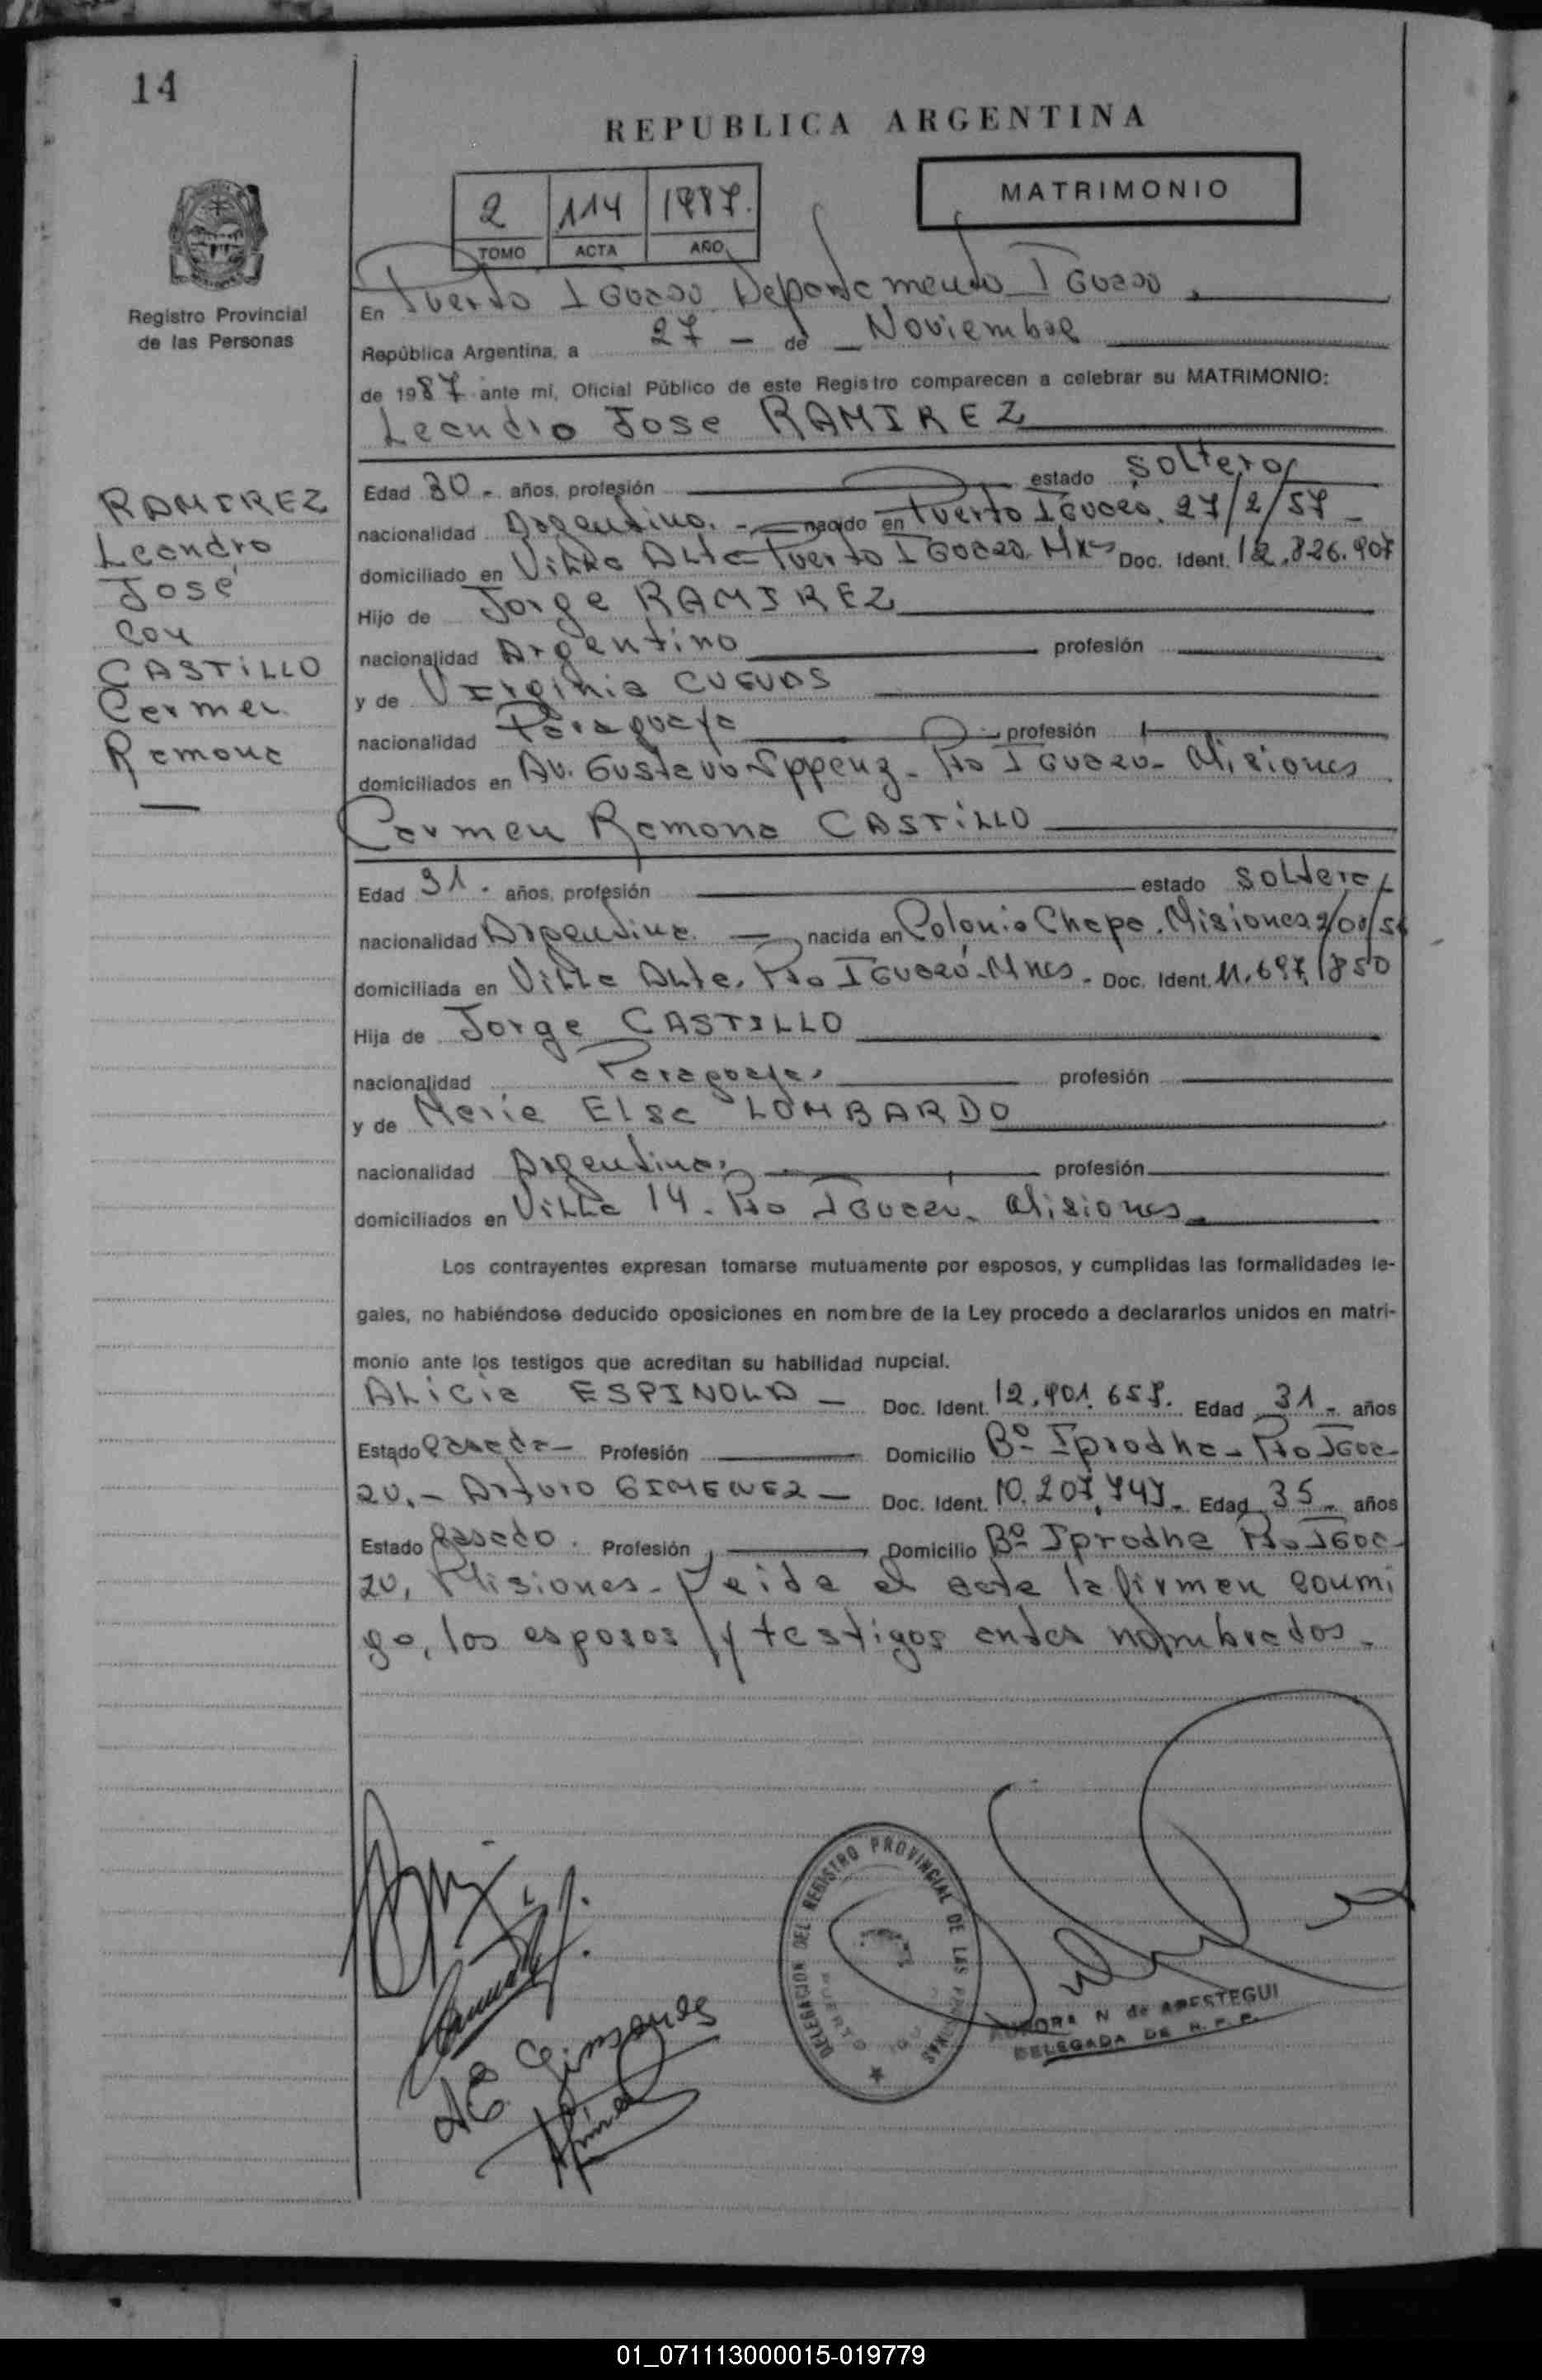 14
REPUBLICA ARGENTINA
2 114 1987.
TOMO ACTA AÑO
MATRIMONIO
Registro Provincial
de las Personas
En Puerto Iguazú Departamento Iguazú
República Argentina, a 27 - de - Noviembre
de 1987 ante mí, Oficial Público de este Registro comparecen a celebrar su MATRIMONIO:
Leandro Jose RAMIREZ
RAMIREZ
Leandro
José
con
CASTILLO
Carmen
Ramona
Edad 30 - años, profesión estado soltero
nacionalidad Argentino. - nacido en Puerto Iguazú. 27/2/57 -
domiciliado en Villa Alta Puerto Iguazú Mnes Doc. Ident. 12.826.907
Hijo de Jorge RAMIREZ
nacionalidad Argentino profesión
y de Virginia CUEVAS
nacionalidad Paraguaya profesión
domiciliados en Av. Gustavo Eppenz - Pto Iguazú - Misiones
Carmen Ramona CASTILLO
Edad 31. años, profesión estado soltera
nacionalidad Argentina. - nacida en Colonia Chapa. Misiones
domiciliada en Villa Alta. Pto Iguazú - Mnes - Doc. Ident. 11.697.850
Hija de Jorge CASTILLO
nacionalidad Paraguaya. profesión
y de Maria Elsa LOMBARDO
nacionalidad Argentina. profesión
domiciliados en Villa 14 - Pto Iguazú. Misiones
Los contrayentes expresan tomarse mutuamente por esposos, y cumplidas las formalidades le-
gales, no habiéndose deducido oposiciones en nombre de la Ley procedo a declararlos unidos en matri-
monio ante los testigos que acreditan su habilidad nupcial.
Alicia ESPINOLA - Doc. Ident. 12.901.657. Edad 31 - años
Estado Casada - Profesión Domicilio Bº Iprodha - Pto Igua-
zú. - Arturo GIMENEZ - Doc. Ident. 10.207.747 - Edad 35 - años
Estado Casado. Profesión Domicilio Bº Iprodha Pto Igua-
zú, Misiones - Leida el acta la firman conmi
go, los esposos y testigos antes nombrados.
DELEGACION DEL REGISTRO PROVINCIAL DE LAS PERSONAS
PUERTO IGU
AURORA N de ARESTEGUI
DELEGADA DE R. P. P.
01_071113000015-019779